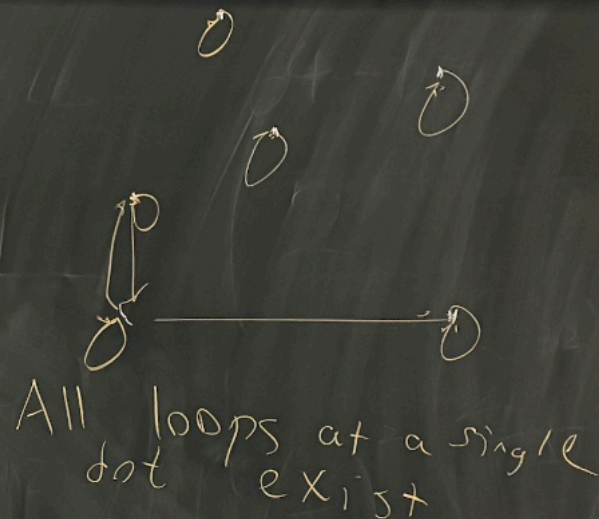 All loops at a single
dot exist